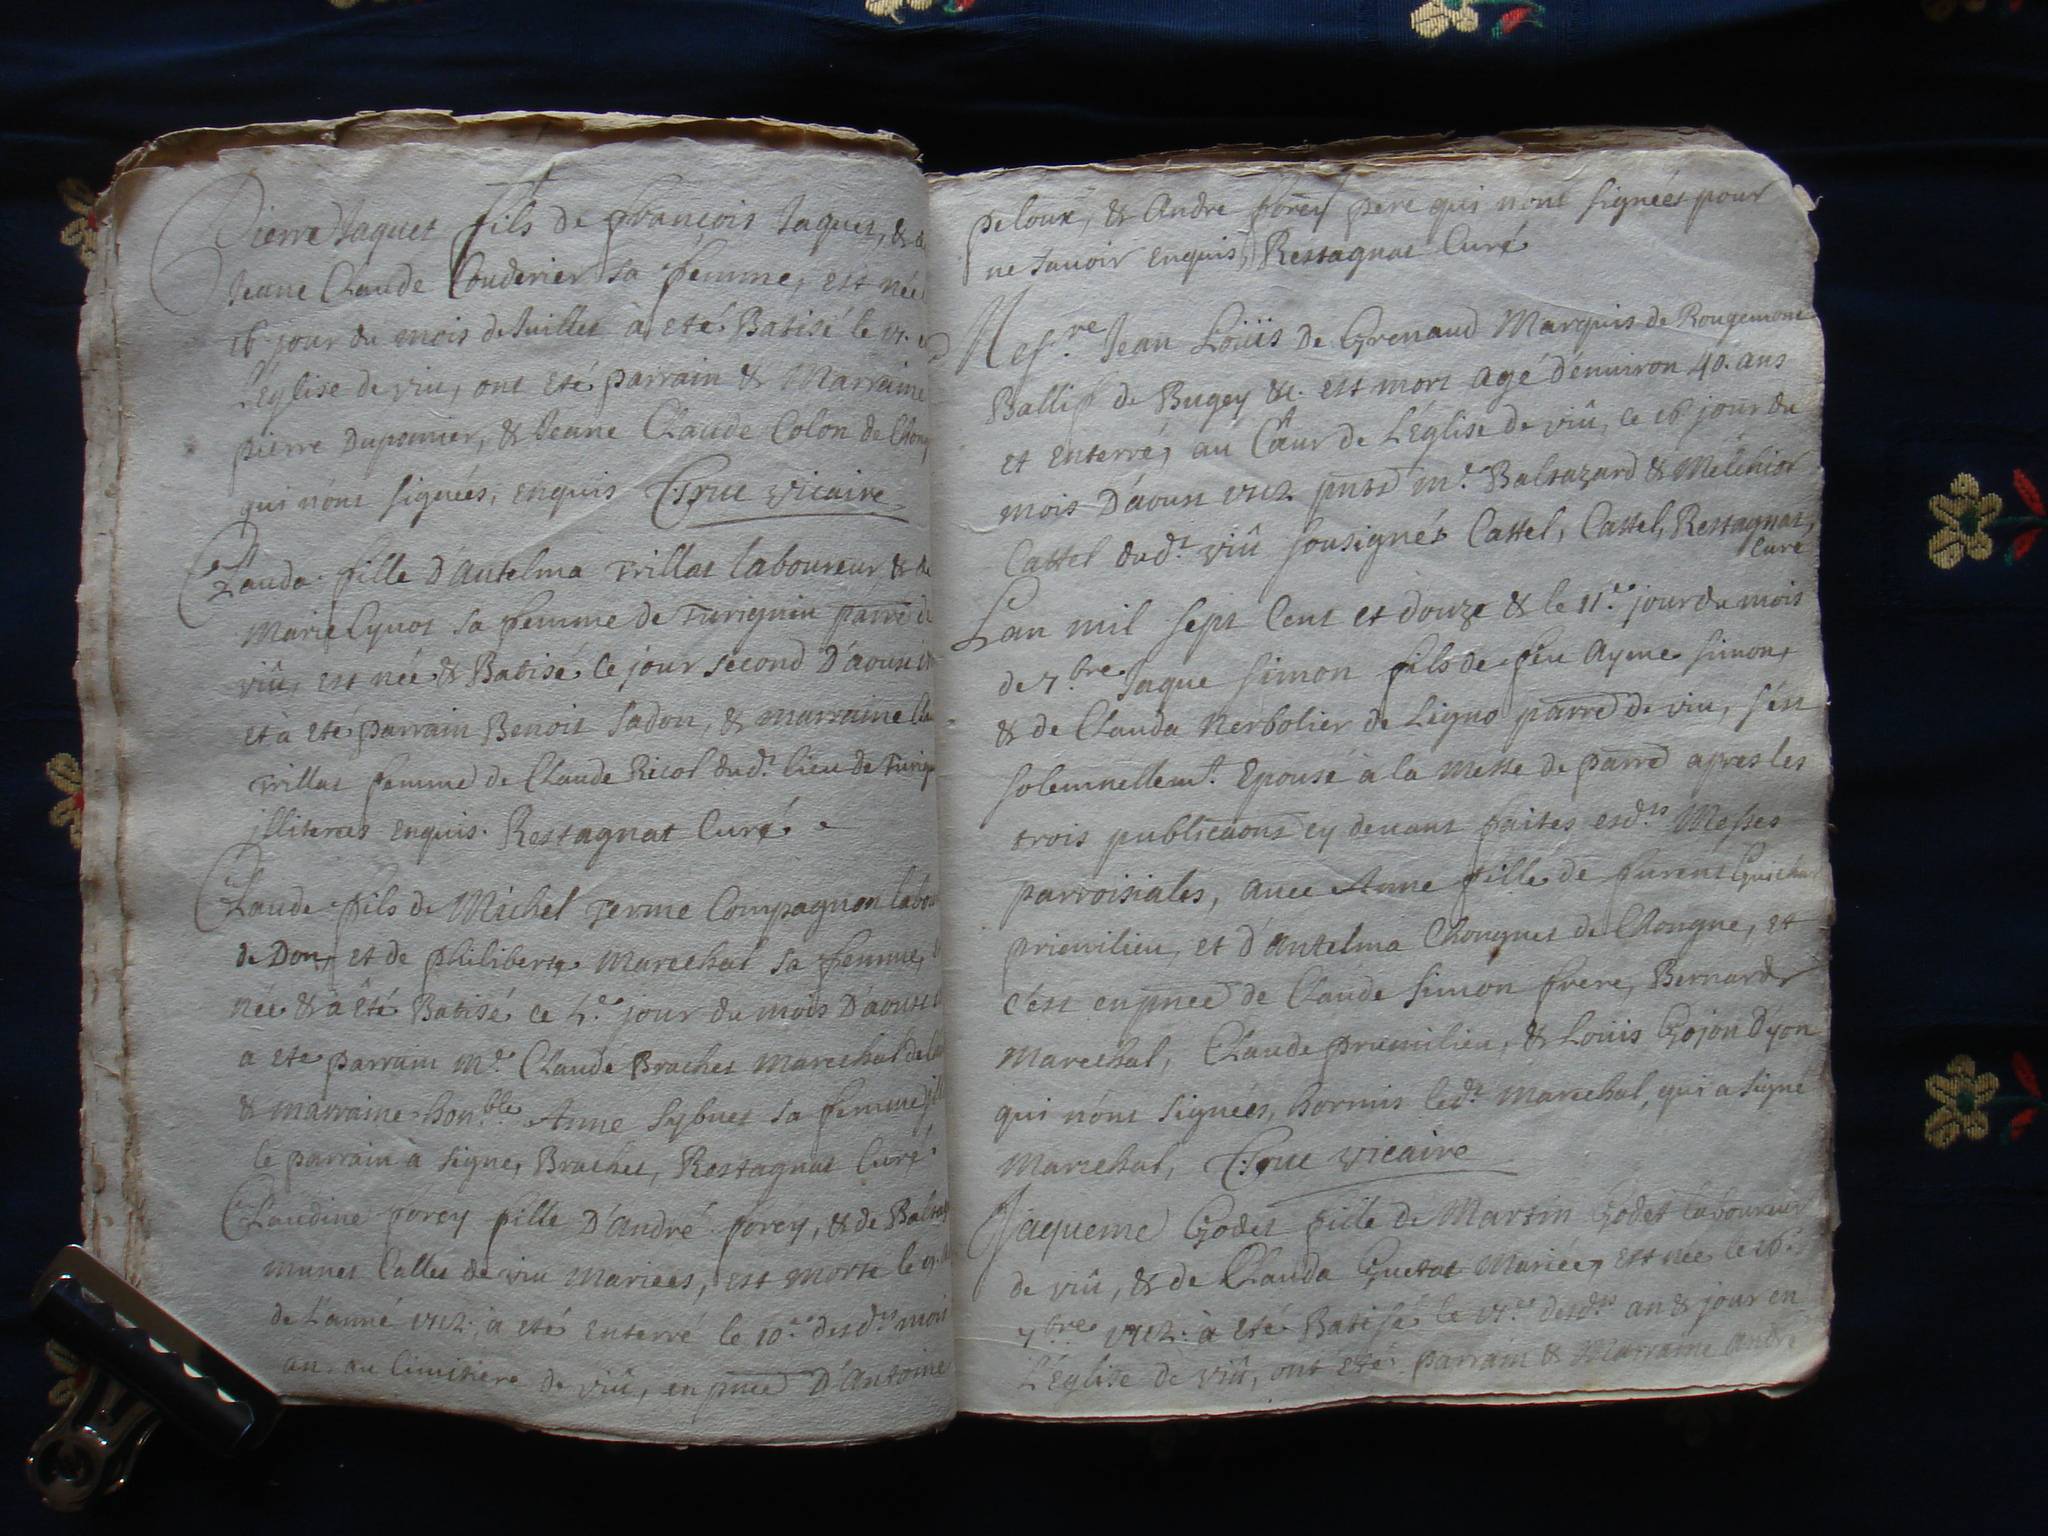 Pierre Jaquet fils de françois Jaquet, & de
Jeane Claude Couderier sa femme, est née
16 jour du mois de Juillet à eté Batisé le 17.
L'Eglise de viu, ont eté parrain & Marraine
pierre Duponier, & Jeane Claude Colon de Chong
qui n'ont signées, enquis Tšrue vicaire
Clauda fille D'Antelma Trillat laboureur & de
Marie Cynot sa femme de Turignin parr.e de
viû, est née & Batisé ce jour second D'aoust
et à eté parrain Benoit Jadon, & marraine Clau
Trillat femme de Claude Ricol dud.t lieu de Turign
jlliteres enquis. Restagnat Curé
Claude fils de Michel Terme Compagnon labou
de Don, et de philiberte Marechal sa femme,
née & à eté Batisé ce 4.e jour du mois D'aoust
a ete parrain m.e Claude Brachet Marechal de
& marraine hon.ble Anne Sybuet sa femme
le parrain à signe, Brachet, Restagnat Curé
Claudine forey fille D'André forey, & de Balta
munet Calles de viu Mariees, est morte le 9.
de L'anné 1712. à eté enterré le 10.e desd.ts mois
an. au Cimitiere de viû, en pnce D'Antoine
peloux, & Andre forey pere qui n'ont signées pour
ne savoir enquis, Restagnat Curé
Mess.re Jean Loüis de Grenaud Marquis de Rougemont
Ballif de Bugey &c. est mort agé d'énuiron 40. ans
et enterré, au Cœur de L'Eglise de viû, ce 16 jour du
mois D'aoust 1712 pnts m.e Baltazard & Melchior
Cattel dud.t viû sousignés Cattel, Cattel, Restagnat,
Curé
Lan mil sept Cent et douze & le 11.e jour du mois
de 7.bre Jaque Simon fils de feu Ayme Simon,
& de Clauda Nerbolier de Ligno parre de viu, s'est
solemnellem.t Epousé à la Messe de parre apres les
trois publicaons cy deuant faites esd.ts Messes
parroisiales, auec Anne fille de furent Guichar
primilieu, et d'Antelma Chongnet de Chongne, et
c'est en pnce de Claude Simon frere, Bernard
Marechal, Claude prumilieu, & Louis Gojon Dyon
qui n'ont signées, hormis led.t Marechal, qui a signé
Marechal, Tšrue vicaire
Jaqueme Godet fille de Martin Godet laboureur
de viû, & de Clauda Guetat Mariées, est née le 16.
7.bre 1712. à eté Batisé le 17.e desd.ts an & jour en
L'Eglise de viû, ont eté parrain & Marraine andré